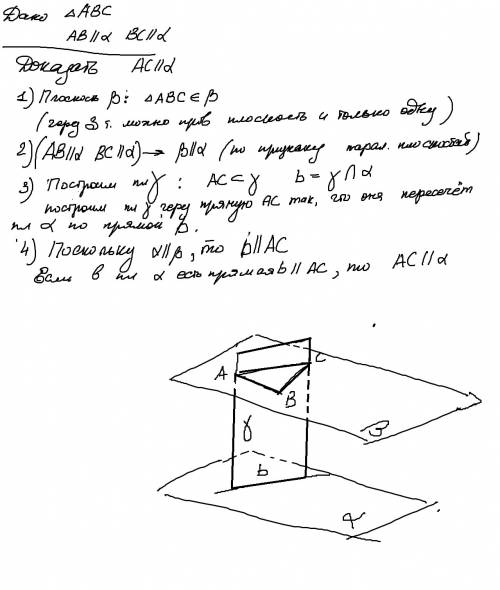 Дано △ABC
AB∥α BC∥α
Доказать AC∥α
1) Плоскость β: △ABC ∈ β
(через 3 т. можно пров плоскость и только одну)
2) (AB∥α BC∥α) → β∥α (по признаку парал. плоскостей)
3) Построим пл γ : AC ⊂ γ b = γ ∩ α
построим пл γ через прямую AC так, что она пересечёт
пл α по прямой b.
4) Поскольку α∥β, то b∥AC
Если в пл α есть прямая b∥AC, то AC∥α
A
C
B
β
γ
b
α